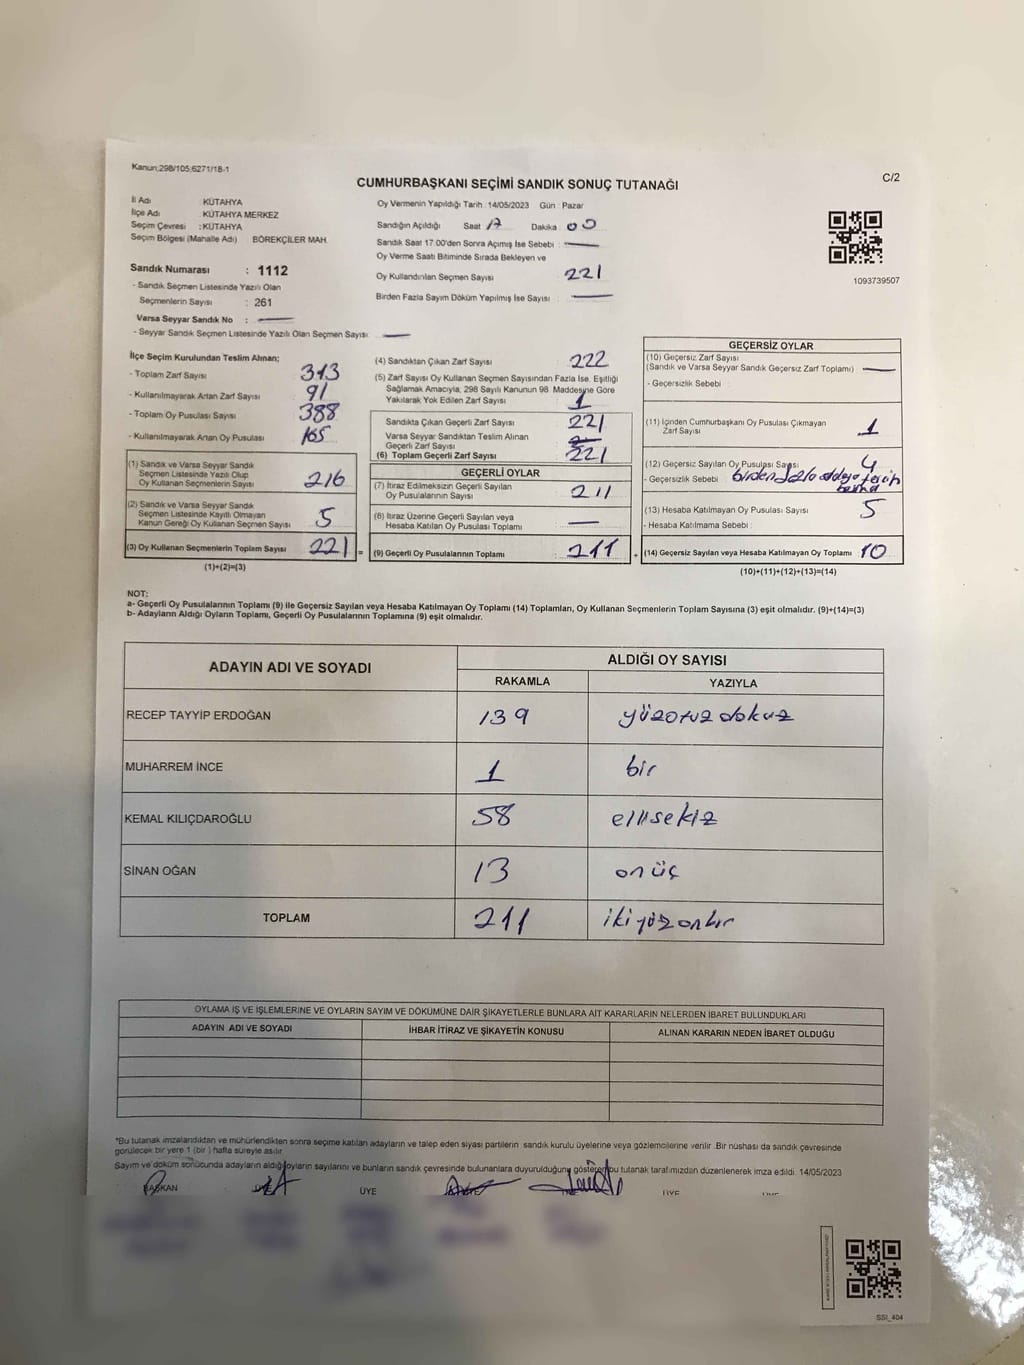 Kanun:298/105;6271/18-1
C/2
CUMHURBAŞKANI SEÇİMİ SANDIK SONUÇ TUTANAĞI
İl Adı : KÜTAHYA
İlçe Adı : KÜTAHYA MERKEZ
Seçim Çevresi : KÜTAHYA
Seçim Bölgesi (Mahalle Adı) : BÖREKÇİLER MAH.
Sandık Numarası : 1112
- Sandık Seçmen Listesinde Yazılı Olan
Seçmenlerin Sayısı : 261
Varsa Seyyar Sandık No :
- Seyyar Sandık Seçmen Listesinde Yazılı Olan Seçmen Sayısı:
Oy Vermenin Yapıldığı Tarih : 14/05/2023 Gün : Pazar
Sandığın Açıldığı Saat 17 Dakika 00
Sandık Saat 17.00'den Sonra Açımış İse Sebebi :
Oy Verme Saati Bitiminde Sırada Bekleyen ve
Oy Kullandırılan Seçmen Sayısı : 221
Birden Fazla Sayım Döküm Yapılmış İse Sayısı :
1093739507
İlçe Seçim Kurulundan Teslim Alınan;
- Toplam Zarf Sayısı : 313
- Kullanılmayarak Artan Zarf Sayısı : 91
- Toplam Oy Pusulası Sayısı : 388
- Kullanılmayarak Artan Oy Pusulası : 165
(1) Sandık ve Varsa Seyyar Sandık
Seçmen Listesinde Yazılı Olup
Oy Kullanan Seçmenlerin Sayısı : 216
(2) Sandık ve Varsa Seyyar Sandık
Seçmen Listesinde Kayıtlı Olmayan
Kanun Gereği Oy Kullanan Seçmen Sayısı : 5
(3) Oy Kullanan Seçmenlerin Toplam Sayısı : 221 =
(1)+(2)=(3)
(4) Sandıktan Çıkan Zarf Sayısı : 222
(5) Zarf Sayısı Oy Kullanan Seçmen Sayısından Fazla İse, Eşitliği
Sağlamak Amacıyla, 298 Sayılı Kanunun 98. Maddesine Göre
Yakılarak Yok Edilen Zarf Sayısı : 1
Sandıkta Çıkan Geçerli Zarf Sayısı : 221
Varsa Seyyar Sandıktan Teslim Alınan
Geçerli Zarf Sayısı
(6) Toplam Geçerli Zarf Sayısı : 221
GEÇERLİ OYLAR
(7) İtiraz Edilmeksizin Geçerli Sayılan
Oy Pusulalarının Sayısı : 211
(8) İtiraz Üzerine Geçerli Sayılan veya
Hesaba Katılan Oy Pusulası Toplamı :
(9) Geçerli Oy Pusulalarının Toplamı : 211 +
GEÇERSİZ OYLAR
(10) Geçersiz Zarf Sayısı
(Sandık ve Varsa Seyyar Sandık Geçersiz Zarf Toplamı) :
- Geçersizlik Sebebi :
(11) İçinden Cumhurbaşkanı Oy Pusulası Çıkmayan
Zarf Sayısı : 1
(12) Geçersiz Sayılan Oy Pusulası Sayısı : 4
- Geçersizlik Sebebi : birden fazla adaya tercih
basma
(13) Hesaba Katılmayan Oy Pusulası Sayısı : 5
- Hesaba Katılmama Sebebi :
(14) Geçersiz Sayılan veya Hesaba Katılmayan Oy Toplamı : 10
(10)+(11)+(12)+(13)=(14)
NOT:
a- Geçerli Oy Pusulalarının Toplamı (9) ile Geçersiz Sayılan veya Hesaba Katılmayan Oy Toplamı (14) Toplamları, Oy Kullanan Seçmenlerin Toplam Sayısına (3) eşit olmalıdır. (9)+(14)=(3)
b- Adayların Aldığı Oyların Toplamı, Geçerli Oy Pusulalarının Toplamına (9) eşit olmalıdır.
ADAYIN ADI VE SOYADI
ALDIĞI OY SAYISI
RAKAMLA YAZIYLA
RECEP TAYYİP ERDOĞAN 139 yüzotuzdokuz
MUHARREM İNCE 1 bir
KEMAL KILIÇDAROĞLU 58 ellisekiz
SİNAN OĞAN 13 onüç
TOPLAM 211 ikiyüzonbir
OYLAMA İŞ VE İŞLEMLERİNE VE OYLARIN SAYIM VE DÖKÜMÜNE DAİR ŞİKAYETLERLE BUNLARA AİT KARARLARIN NELERDEN İBARET BULUNDUKLARI
ADAYIN ADI VE SOYADI İHBAR İTİRAZ VE ŞİKAYETİN KONUSU ALINAN KARARIN NEDEN İBARET OLDUĞU
*Bu tutanak imzalandıktan ve mühürlendikten sonra seçime katılan adayların ve talep eden siyasi partilerin sandık kurulu üyelerine veya gözlemcilerine verilir .Bir nüshası da sandık çevresinde
görülecek bir yere 1 (bir ) hafta süreyle asılır.
Sayım ve döküm sonucunda adayların aldığı oyların sayılarını ve bunların sandık çevresinde bulunanlara duyurulduğunu gösteren bu tutanak tarafımızdan düzenlenerek imza edildi. 14/05/2023
BAŞKAN ÜYE ÜYE ÜYE ÜYE ÜYE
SSI_404